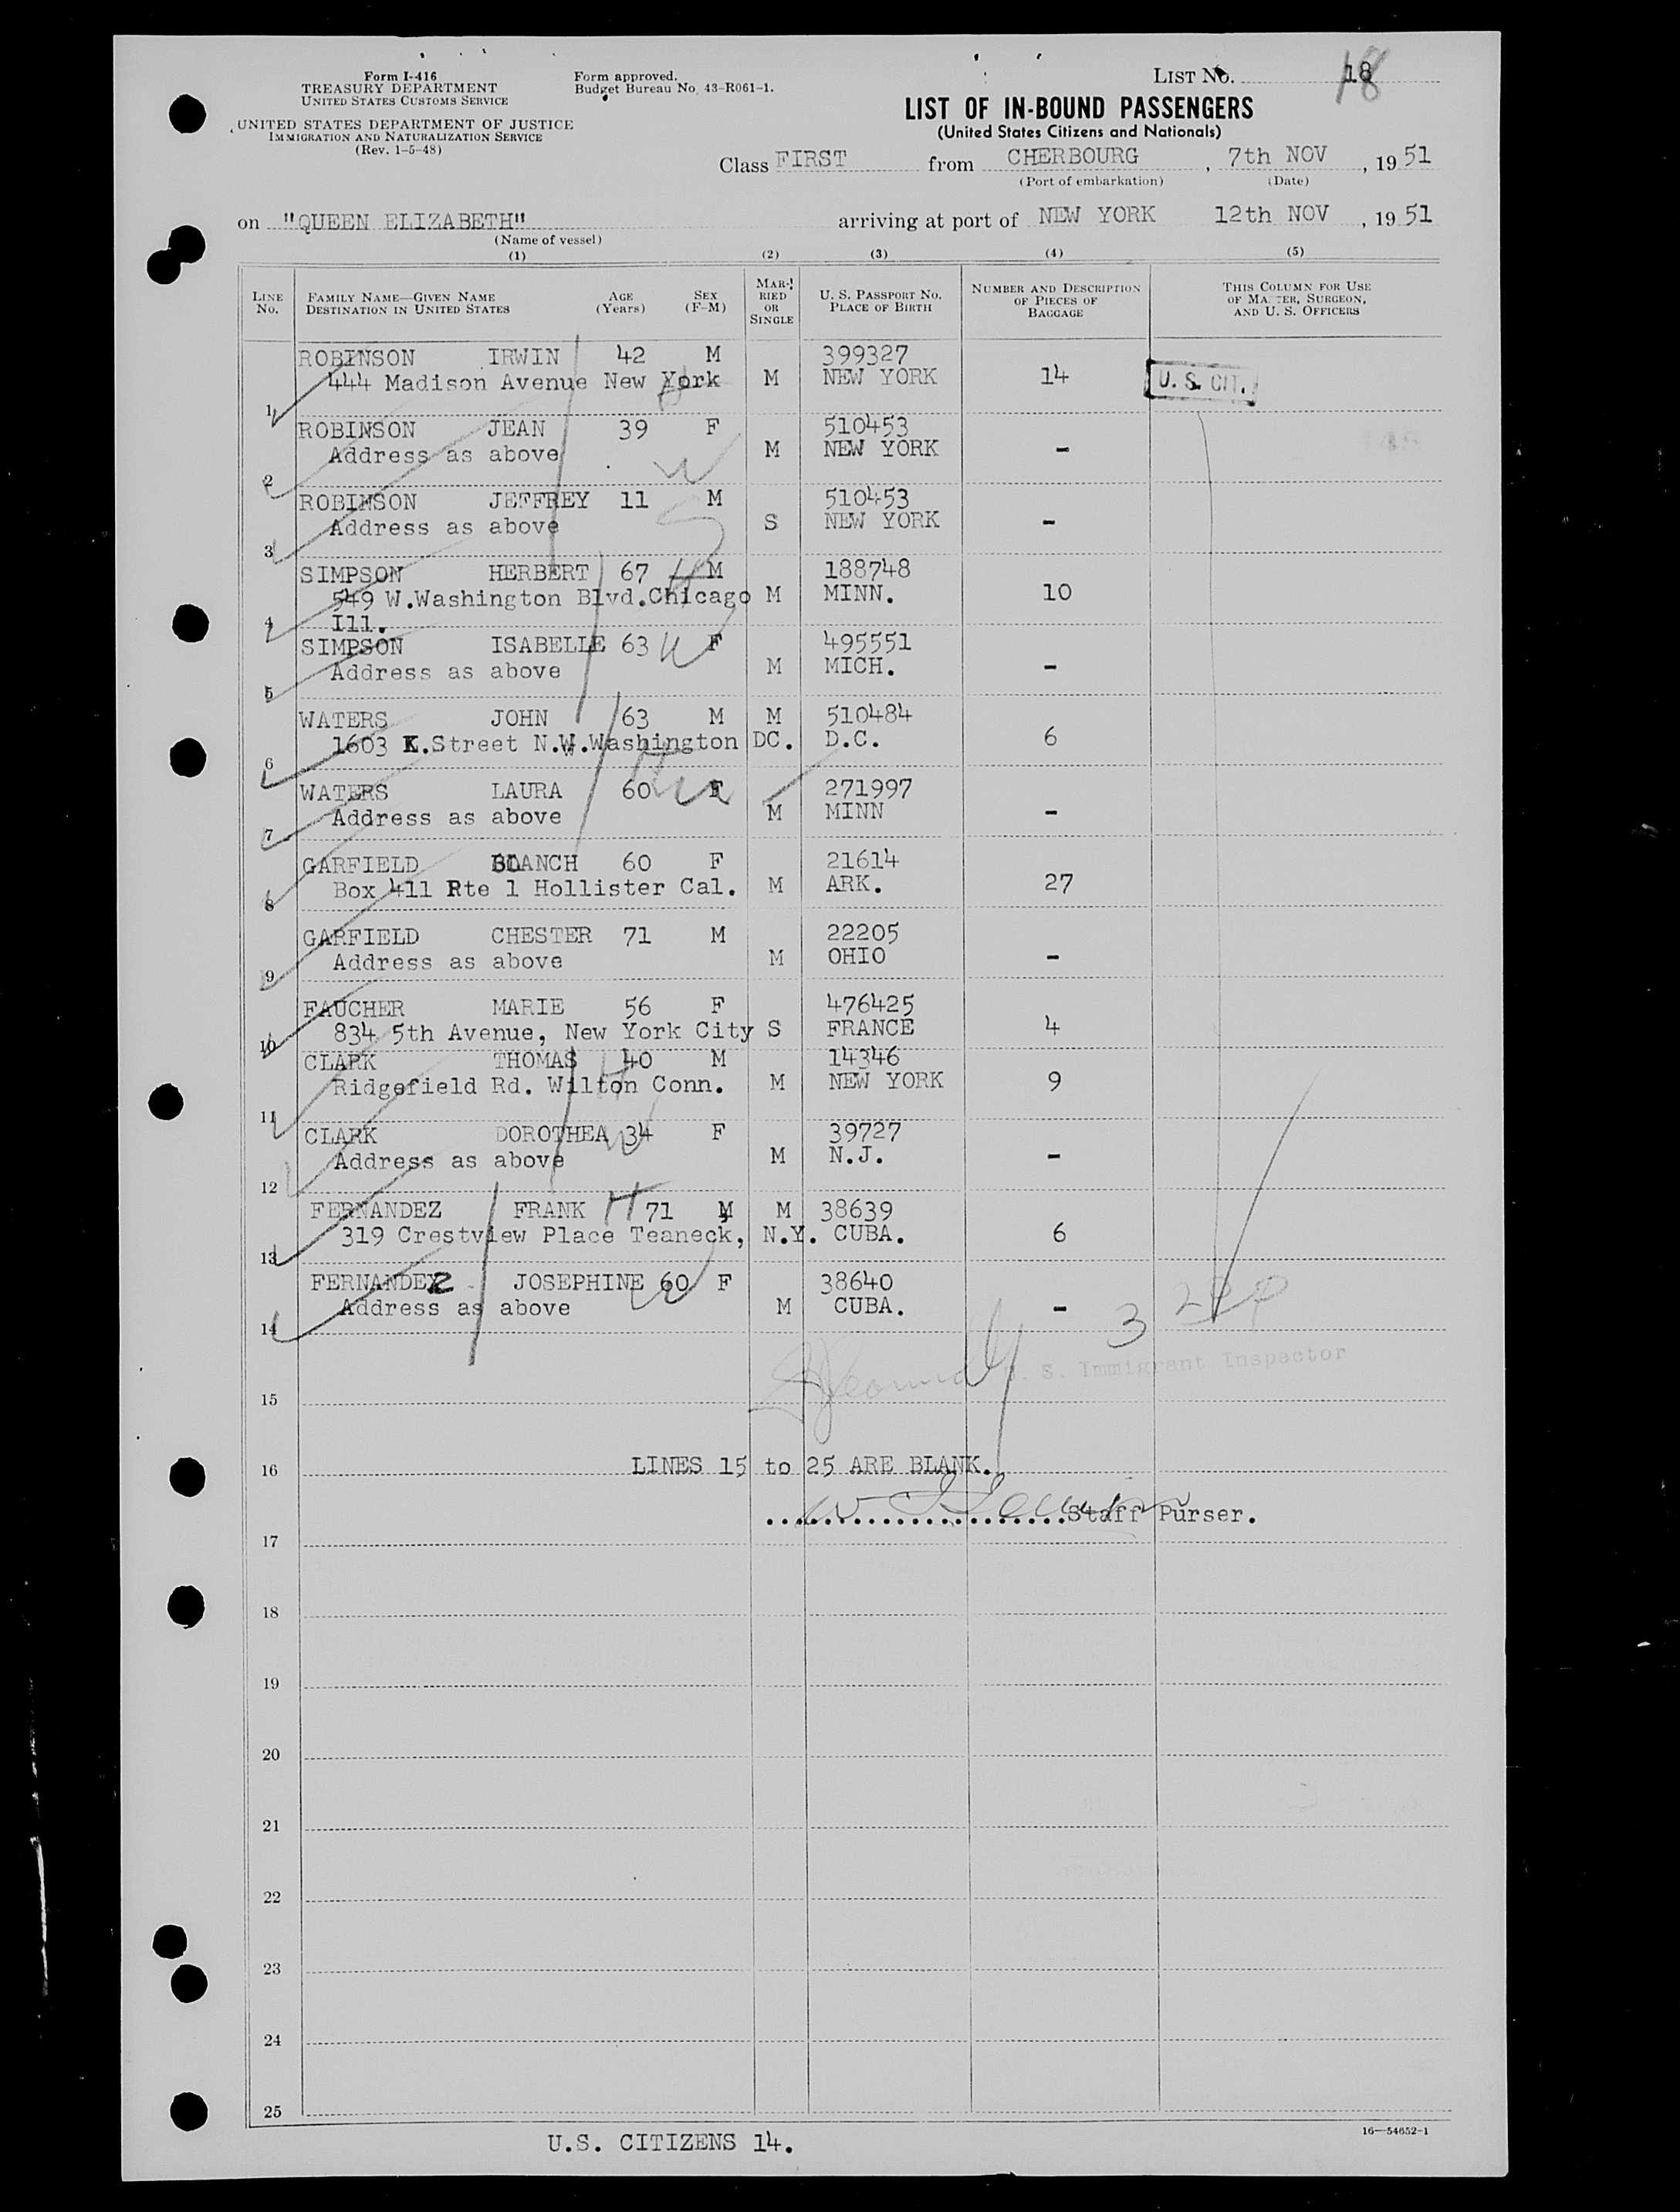 Form I-416
TREASURY DEPARTMENT
UNITED STATES CUSTOMS SERVICE
UNITED STATES DEPARTMENT OF JUSTICE
IMMIGRATION AND NATURALIZATION SERVICE
(Rev. 1-5-48)
Form approved.
Budget Bureau No. 43-R061-1.
LIST No. 18
LIST OF IN-BOUND PASSENGERS
(United States Citizens and Nationals)
Class FIRST from CHERBOURG, 7th NOV, 1951
(Port of embarkation) (Date)
on "QUEEN ELIZABETH" arriving at port of NEW YORK 12th NOV, 1951
(Name of vessel)
(1) (2) (3) (4) (5)
LINE No. FAMILY NAME—GIVEN NAME DESTINATION IN UNITED STATES AGE (Years) SEX (F-M) MARRIED OR SINGLE U. S. PASSPORT No. PLACE OF BIRTH NUMBER AND DESCRIPTION OF PIECES OF BAGGAGE THIS COLUMN FOR USE OF MASTER, SURGEON, AND U. S. OFFICERS
ROBINSON IRWIN 42 M 399327
1 444 Madison Avenue New York M NEW YORK 14 U. S. CIT.
ROBINSON JEAN 39 F 510453
2 Address as above M NEW YORK -
ROBINSON JEFFREY 11 M 510453
3 Address as above S NEW YORK -
SIMPSON HERBERT 67 M 188748
549 W.Washington Blvd.Chicago M MINN. 10
4 Ill.
SIMPSON ISABELLE 63 F 495551
5 Address as above M MICH. -
WATERS JOHN 63 M M 510484
6 1603 K.Street N.W.Washington DC. D.C. 6
WATERS LAURA 60 F 271997
7 Address as above M MINN -
GARFIELD BLANCH 60 F 21614
8 Box 411 Rte 1 Hollister Cal. M ARK. 27
GARFIELD CHESTER 71 M 22205
9 Address as above M OHIO -
FAUCHER MARIE 56 F 476425
10 834 5th Avenue, New York City S FRANCE 4
CLARK THOMAS 40 M 14346
11 Ridgefield Rd. Wilton Conn. M NEW YORK 9
CLARK DOROTHEA 34 F 39727
12 Address as above M N.J. -
FERNANDEZ FRANK 71 M M 38639
13 319 Crestview Place Teaneck, N.Y. CUBA. 6
FERNANDEZ JOSEPHINE 60 F 38640
14 Address as above M CUBA. -
3
U. S. Immigrant Inspector
15
16 LINES 15 to 25 ARE BLANK.
......................Staff Purser.
17
18
19
20
21
22
23
24
25
16—54652-1
U.S. CITIZENS 14.